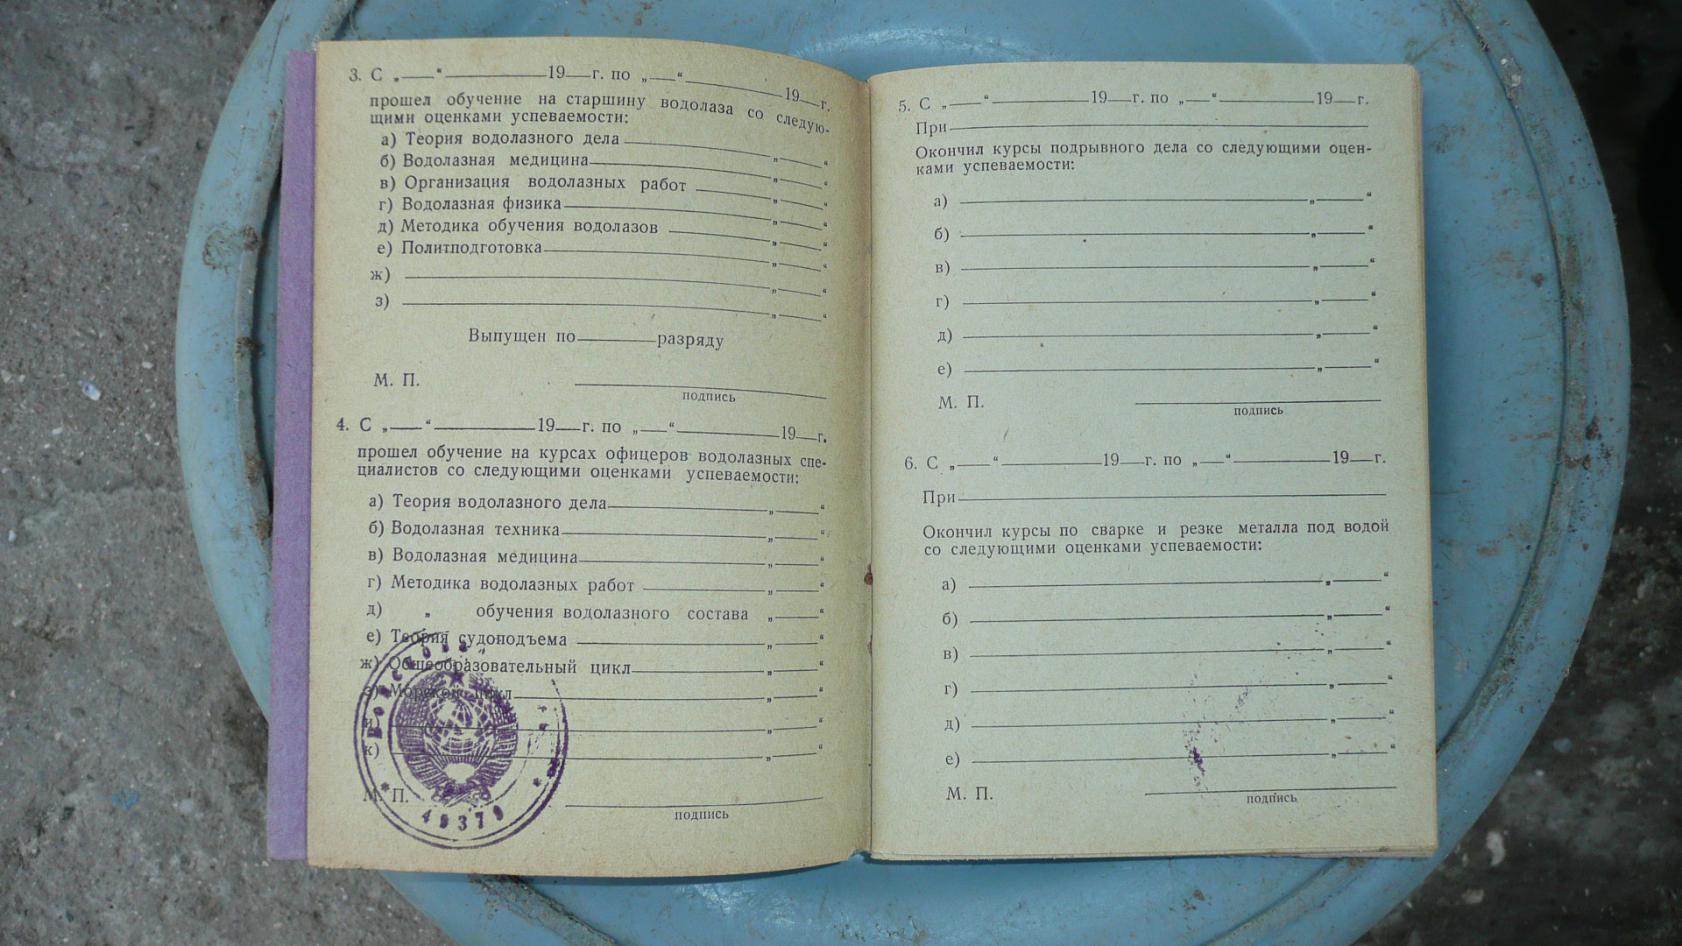 3. С „___“ ___________19___г. по „___“ ___________19___г.
прошел обучение на старшину водолаза со следую-
щими оценками успеваемости:
а) Теория водолазного дела ___________„____“
б) Водолазная медицина___________„____“
в) Организация водолазных работ ___________„____“
г) Водолазная физика___________„____“
д) Методика обучения водолазов ___________„____“
е) Политподготовка___________„____“
ж) ___________„____“
з) ___________„____“
Выпущен по________разряду
М. П. ___________
подпись
4. С „___“ ___________19___г. по „___“ ___________19___г.
прошел обучение на курсах офицеров водолазных спе-
циалистов со следующими оценками успеваемости:
а) Теория водолазного дела___________„____“
б) Водолазная техника___________„____“
в) Водолазная медицина___________„____“
г) Методика водолазных работ ___________„____“
д) „ обучения водолазного состава „____“
е) Теория судоподъема ___________„____“
ж) Общеобразовательный цикл___________„____“
з) Морской цикл___________„____“
и) ___________„____“
к) ___________„____“
М. П. ___________
подпись
49379
5. С „___“ ___________19___г. по „___“ ___________19___г.
При___________
Окончил курсы подрывного дела со следующими оцен-
ками успеваемости:
а) ___________„____“
б) ___________„____“
в) ___________„____“
г) ___________„____“
д) ___________„____“
е) ___________„____“
М. П. ___________
подпись
6. С „___“ ___________19___г. по „___“ ___________19___г.
При___________
Окончил курсы по сварке и резке металла под водой
со следующими оценками успеваемости:
а) ___________„____“
б) ___________„____“
в) ___________„____“
г) ___________„____“
д) ___________„____“
е) ___________„____“
М. П. ___________
подпись